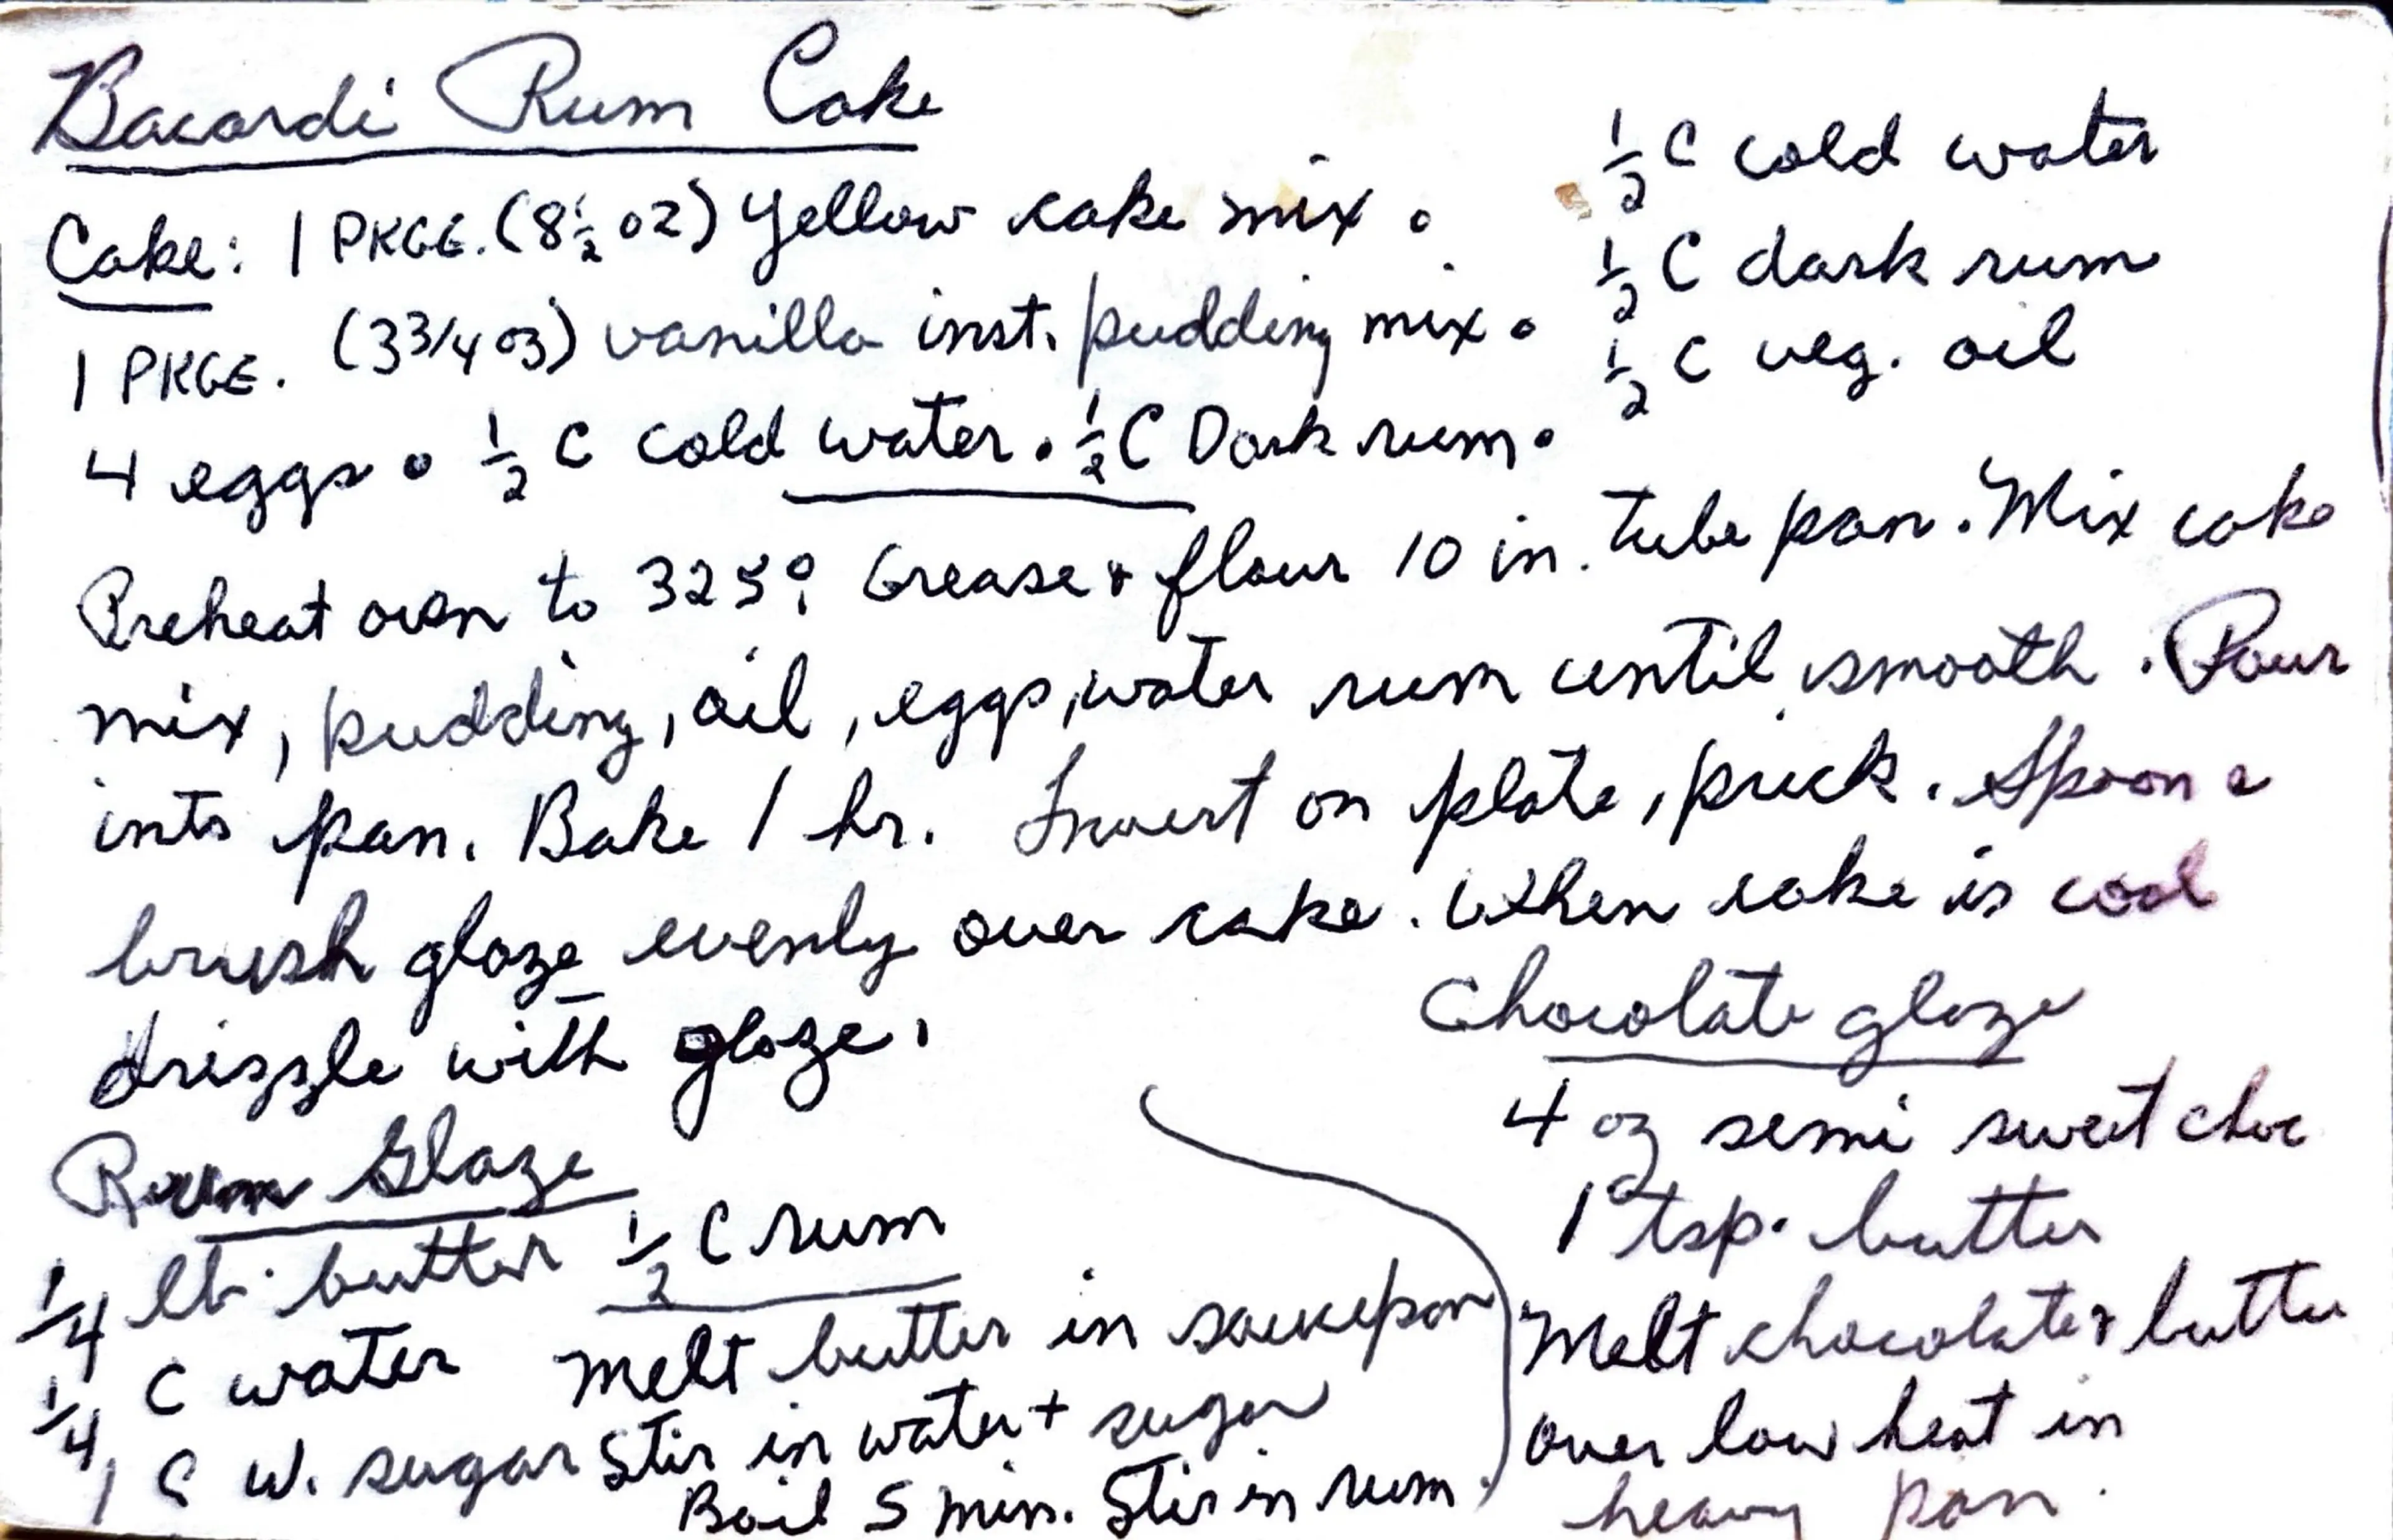 Bacardi Rum Cake
Cake: 1 PKGE. (8½ oz) Yellow cake mix.
1 PKGE. (3 3/4 oz) vanilla inst. pudding mix.
4 eggs. ½ C cold water. ½ C Dark rum.
½ C cold water
½ C dark rum
½ C veg. oil
Preheat oven to 325°. Grease & flour 10 in. tube pan. Mix cake
mix, pudding, oil, eggs, water rum until smooth. Pour
into pan. Bake 1 hr. Invert on plate, prick. Spoon &
brush glaze evenly over cake. When cake is cool
drizzle with glaze.
Rum Glaze
¼ lb. butter ½ C rum
¼ C water Melt butter in saucepan
1 C w. sugar Stir in water + sugar
Boil 5 min. Stir in rum.
Chocolate glaze
4 oz semi sweet choc
1 tsp. butter
Melt chocolate & butter
over low heat in
heavy pan.